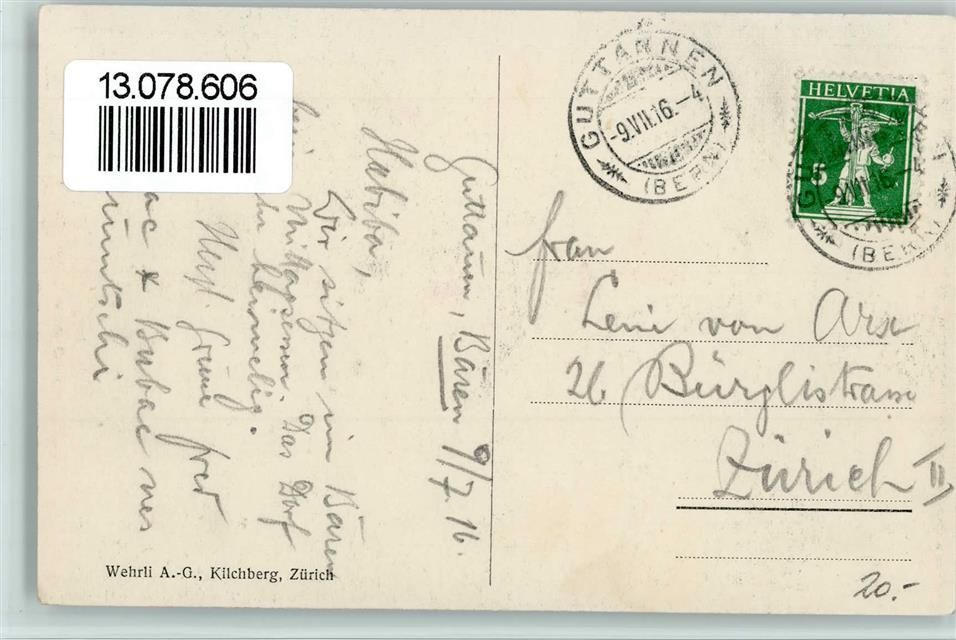 13.078.606
GUTTANNEN
-9.VII.16.-4
(BERN)
HELVETIA
5
(BERN)
Guttannen, Bären 9/7.16.
Wir sitzen im Bären
beim Mittagessen. Das Dorf
ist heimelig.
Herzl. Grüsse Fred
Frau
Leni von Arx
26 Bürglistrasse
Zürich II
Wehrli A.-G., Kilchberg, Zürich
20.-